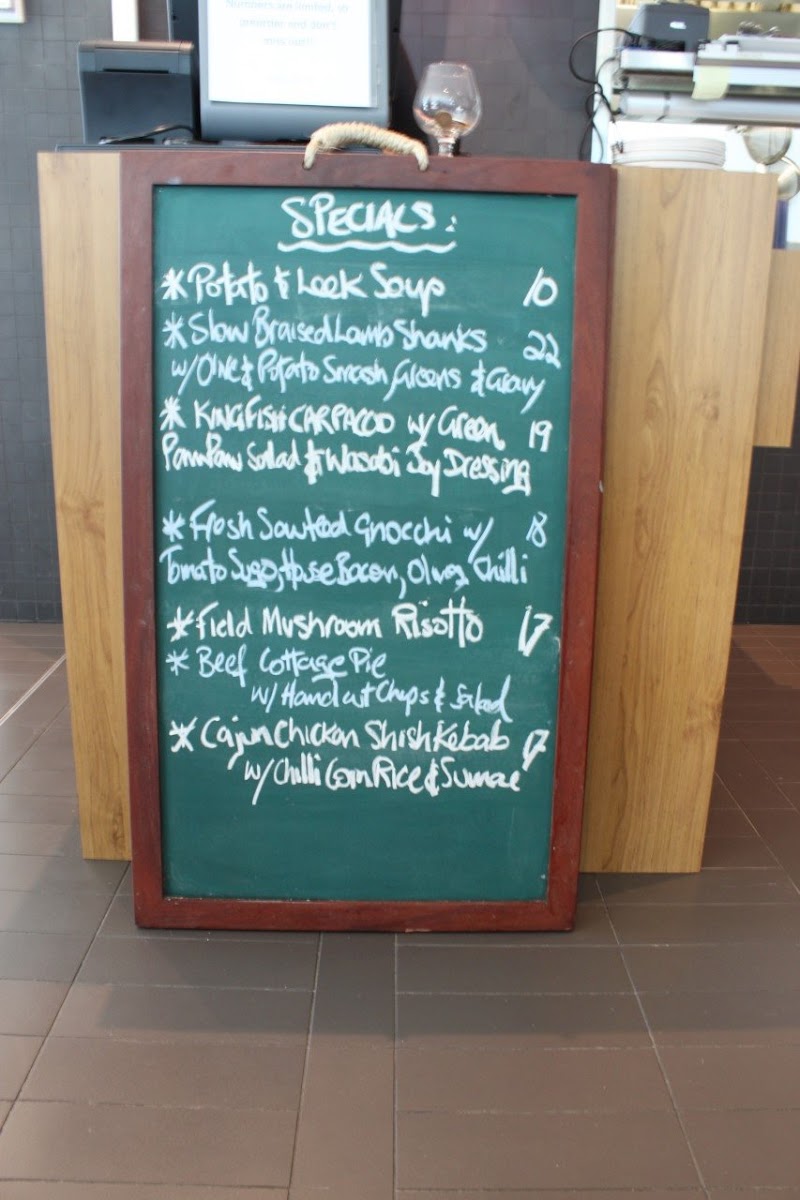 Numbers are limited, so
preorder and don't
miss out!!
SPECIALS:
* Potato & Leek Soup 10
* Slow Braised Lamb Shanks 22
w/ Olive & Potato Smash, Greens & Gravy
* KINGFISH CARPACCIO w/ Green 19
PawPaw Salad & Wasabi Soy Dressing
* Fresh Sauteed Gnocchi w/ 18
Tomato Sugo, House Bacon, Olives, Chilli
* Field Mushroom Risotto 17
* Beef Cottage Pie
w/ Hand cut Chips & Salad
* Cajun Chicken Shish Kebab 17
w/ Chilli Corn Rice & Sumac